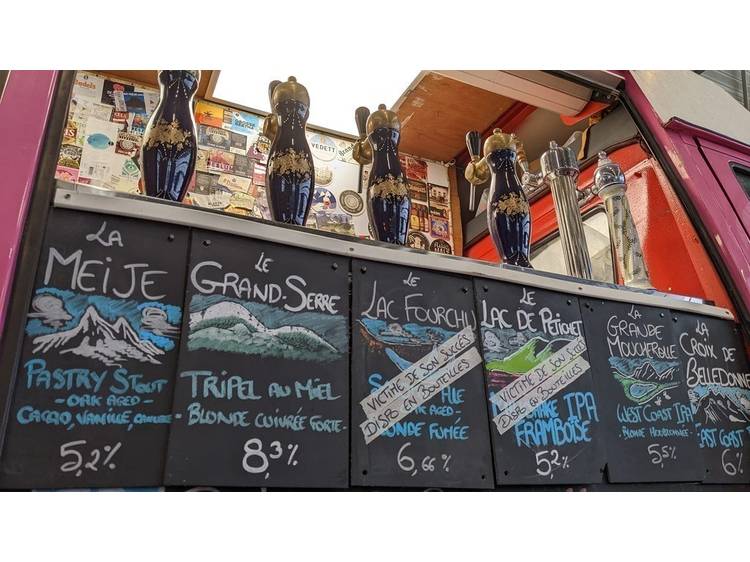 LA
MEIJE
PASTRY STOUT
- OAK AGED -
CACAO, VANILLE,
5,2%
LE
GRAND-SERRE
TRIPEL AU MIEL
- BLONDE CUIVRÉE FORTE -
8,3%
LE
LAC FOURCHU
VICTIME DE SON SUCCÈS
DISPO EN BOUTEILLES
ALE
OAK AGED -
BLONDE FUMÉE
6,66%
LE
LAC DE PÉTICHET
VICTIME DE SON SUCCÈS
DISPO EN BOUTEILLES
IPA
FRAMBOISE
5,2%
LA
GRANDE
MOUCHEROLLE
WEST COAST IPA
- BLONDE HOUBLONNÉE -
5,5%
LA
CROIX DE
BELLEDONNE
EAST COAST
6%
VEDETT